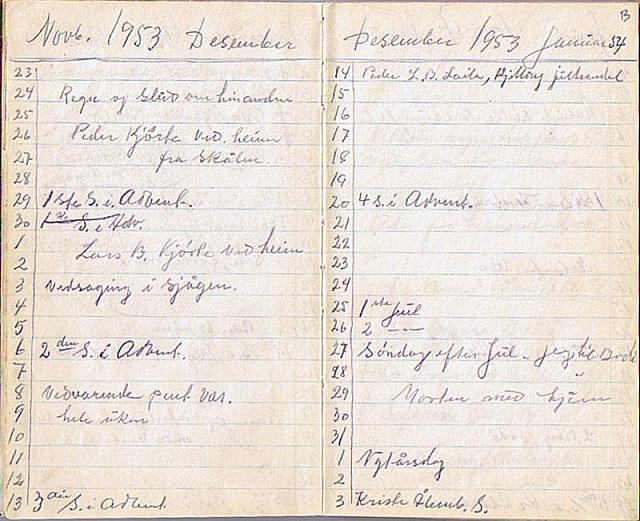 Novb. 1953 Desember
23
24 Regn og Slud om hinanden
25
26 Peder Kjörte ved. heim
27 fra Skålen.
28
29 1ste S. i. Advent.
30 1ste S. i Adv.
1 Lars B. Kjörte ved heim
2
3 Vedsaging i Sjøgen.
4
5
6 2den S. i Advent.
7
8 Vedvarende pent Vær.
9 hele uken
10
11
12
13 3die S. i Advent.
B
Desember 1953 Januar 54
14 Peder L. B.
15
16
17
18
19
20 4 S. i Advent.
21
22
23
24
25 1ste Jul
26 2 — —
27 Söndag efter Jul.
28
29 Morten med hjem
30
31
1 Nytårsdag
2
3 Kristi Åbenb. S.